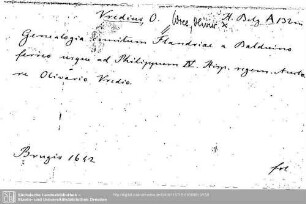 Vredius, O. Wree, Olivier H. Belg A 132
Genealogia comitum Flandriae a Balduino
ferreo usque ad Philippum IV. Hisp. regem. Aucto-
re Olivario Vredio.
Brugis 1642
fol
Sächsische Landesbibliothek -
Staats- und Universitätsbibliothek Dresden